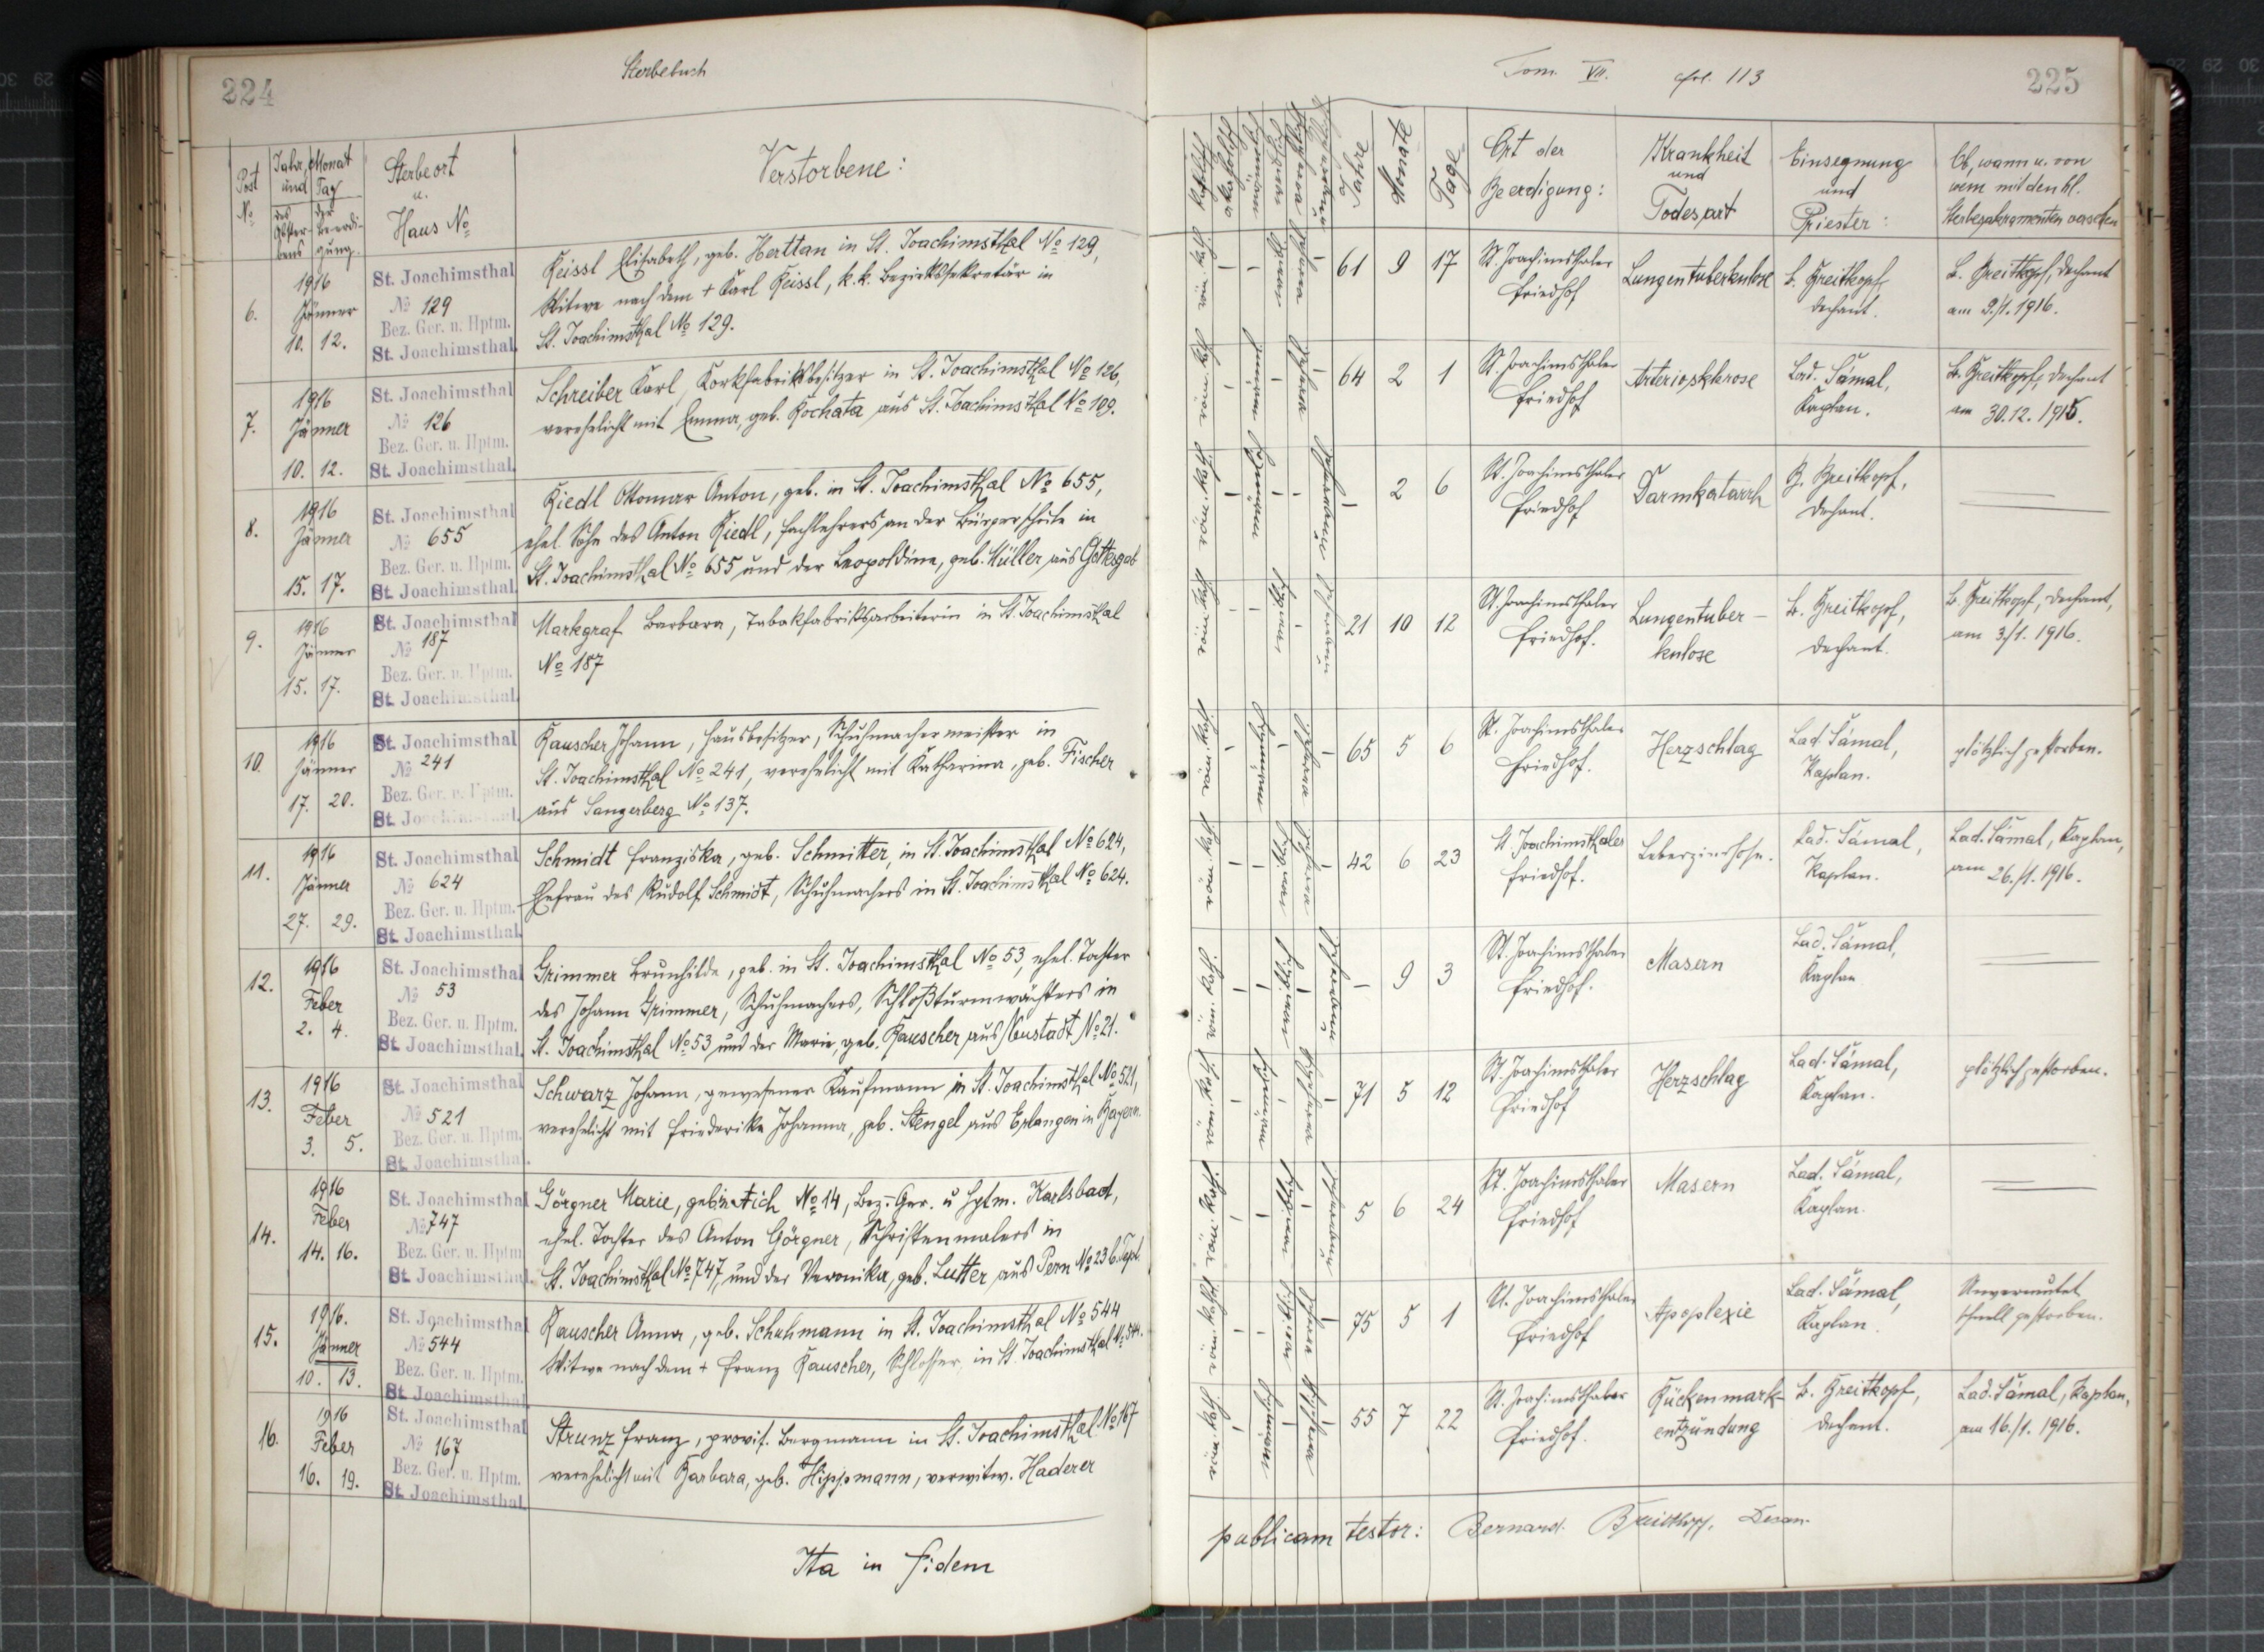 224
Sterbebuch
Post
No
Jahr, Monat
und Tag
des
Abster-
bens
der
Beerdi-
gung.
Sterbeort
u.
Haus No
Verstorbene:
6.
1916
Jänner
10. 12.
St. Joachimsthal
No 129
Bez. Ger. u. Hptm.
St. Joachimsthal.
Reissl Elisabeth, geb. Herttan in St. Joachimsthal No 129,
Witwe nach dem + Karl Reissl, k.k. Bezirkssekretär in
St. Joachimsthal No 129.
7.
1916
Jänner
10. 12.
St. Joachimsthal
No 126
Bez. Ger. u. Hptm.
St. Joachimsthal.
Schreiber Karl, Korkfabriksbesitzer in St. Joachimsthal No 126,
verehelicht mit Emma, geb. Kochata aus St. Joachimsthal No 109.
8.
1916
Jänner
15. 17.
St. Joachimsthal
No 655
Bez. Ger. u. Hptm.
St. Joachimsthal.
Riedl Ottomar Anton, geb. in St. Joachimsthal No 655,
ehel. Sohn des Anton Riedl, Fachlehrers an der Bürgerschule in
St. Joachimsthal No 655 und der Leopoldine, geb. Müller aus Gottesgab
9.
1916
Jänner
15. 17.
St. Joachimsthal
No 187
Bez. Ger. u. Hptm.
St. Joachimsthal.
Markgraf Barbara, Tabakfabriksarbeiterin in St. Joachimsthal
No 187
10.
1916
Jänner
17. 20.
St. Joachimsthal
No 241
Bez. Ger. u. Hptm.
St. Joachimsthal.
Rauscher Johann, Hausbesitzer, Schuhmachermeister in
St. Joachimsthal No 241, verehelicht mit Katharina, geb. Fischer
aus Sangerberg No 137.
11.
1916
Jänner
27. 29.
St. Joachimsthal
No 624
Bez. Ger. u. Hptm.
St. Joachimsthal.
Schmidt Franziska, geb. Schmitter, in St. Joachimsthal No 624,
Ehefrau des Rudolf Schmidt, Schuhmachers in St. Joachimsthal No 624.
12.
1916
Feber
2. 4.
St. Joachimsthal
No 53
Bez. Ger. u. Hptm.
St. Joachimsthal.
Grimmer Brunhilde, geb. in St. Joachimsthal No 53, ehel. Tochter
des Johann Grimmer, Schuhmachers, Schloßturmwächters in
St. Joachimsthal No 53 und der Marie, geb. Rauscher aus Neustadt No 21.
13.
1916
Feber
3. 5.
St. Joachimsthal
No 521
Bez. Ger. u. Hptm.
St. Joachimsthal.
Schwarz Johann, gewesener Kaufmann in St. Joachimsthal No 521,
verehelicht mit Friederike Johanna, geb. Stengel aus Erlangen in Bayern.
14.
1916
Feber
14. 16.
St. Joachimsthal
No 747
Bez. Ger. u. Hptm.
St. Joachimsthal.
Görgner Marie, geb. in Aich No 14, Bez.-Ger. u Hptm. Karlsbad,
ehel. Tochter des Anton Görgner, Schriftenmalers in
St. Joachimsthal No 747, und der Veronika, geb. Lutter aus Pern No 23 b. Tepl.
15.
1916.
Jänner
10. 13.
St. Joachimsthal
No 544
Bez. Ger. u. Hptm.
St. Joachimsthal.
Rauscher Anna, geb. Schuhmann in St. Joachimsthal No 544
Witwe nach dem + Franz Rauscher, Schlosser, in St. Joachimsthal No 544.
16.
1916
Feber
16. 19.
St. Joachimsthal
No 167
Bez. Ger. u. Hptm.
St. Joachimsthal.
Strunz Franz, provis. Bergmann in St. Joachimsthal No 167
verehelicht mit Barbara, geb. Hippmann, verwitw. Haderer
Ita in fidem
Tom. VII. fol. 113
225
Jahre
Monate
Tage
Ort der
Beerdigung:
Krankheit
und
Todesart
Einsegnung
und
Priester:
Ob, wann u. von
wem mit den hl.
Sterbesakramenten versehen
röm. kath.
61 9 17
St. Joachimsthaler
Friedhof
Lungentuberkulose
B. Breitkopf,
Dechant.
B. Breitkopf, Dechant
am 9./1. 1916.
röm. kath.
64 2 1
St. Joachimsthaler
Friedhof
Arteriosklerose
Lad. Sámal,
Kaplan.
B. Breitkopf, Dechant
am 30. 12. 1915.
röm. kath.
– 2 6
St. Joachimsthaler
Friedhof
Darmkatarrh
B. Breitkopf,
Dechant.
röm. kath.
21 10 12
St. Joachimsthaler
Friedhof.
Lungentuber-
kulose
B. Breitkopf,
Dechant.
B. Breitkopf, Dechant,
am 3./1. 1916.
röm. kath.
65 5 6
St. Joachimsthaler
Friedhof.
Herzschlag
Lad. Sámal,
Kaplan.
plötzlich gestorben.
röm. kath.
42 6 23
St. Joachimsthaler
Friedhof.
Leberzirrhose.
Lad. Sámal,
Kaplan.
Lad. Sámal, Kaplan,
am 26./1. 1916.
röm. kath.
– 9 3
St. Joachimsthaler
Friedhof.
Masern
Lad. Sámal,
Kaplan
röm. kath.
71 5 12
St. Joachimsthaler
Friedhof
Herzschlag
Lad. Sámal,
Kaplan.
plötzlich gestorben.
röm. kath.
5 6 24
St. Joachimsthaler
Friedhof
Masern
Lad. Sámal,
Kaplan.
röm. kath.
75 5 1
St. Joachimsthaler
Friedhof
Apoplexie
Lad. Sámal,
Kaplan.
Unvermutet
schnell gestorben.
röm. kath.
55 7 22
St. Joachimsthaler
Friedhof.
Rückenmark-
entzündung
B. Breitkopf,
Dechant.
Lad. Sámal, Kaplan,
am 16./1. 1916.
publicam testor: Bernard Breitkopf,